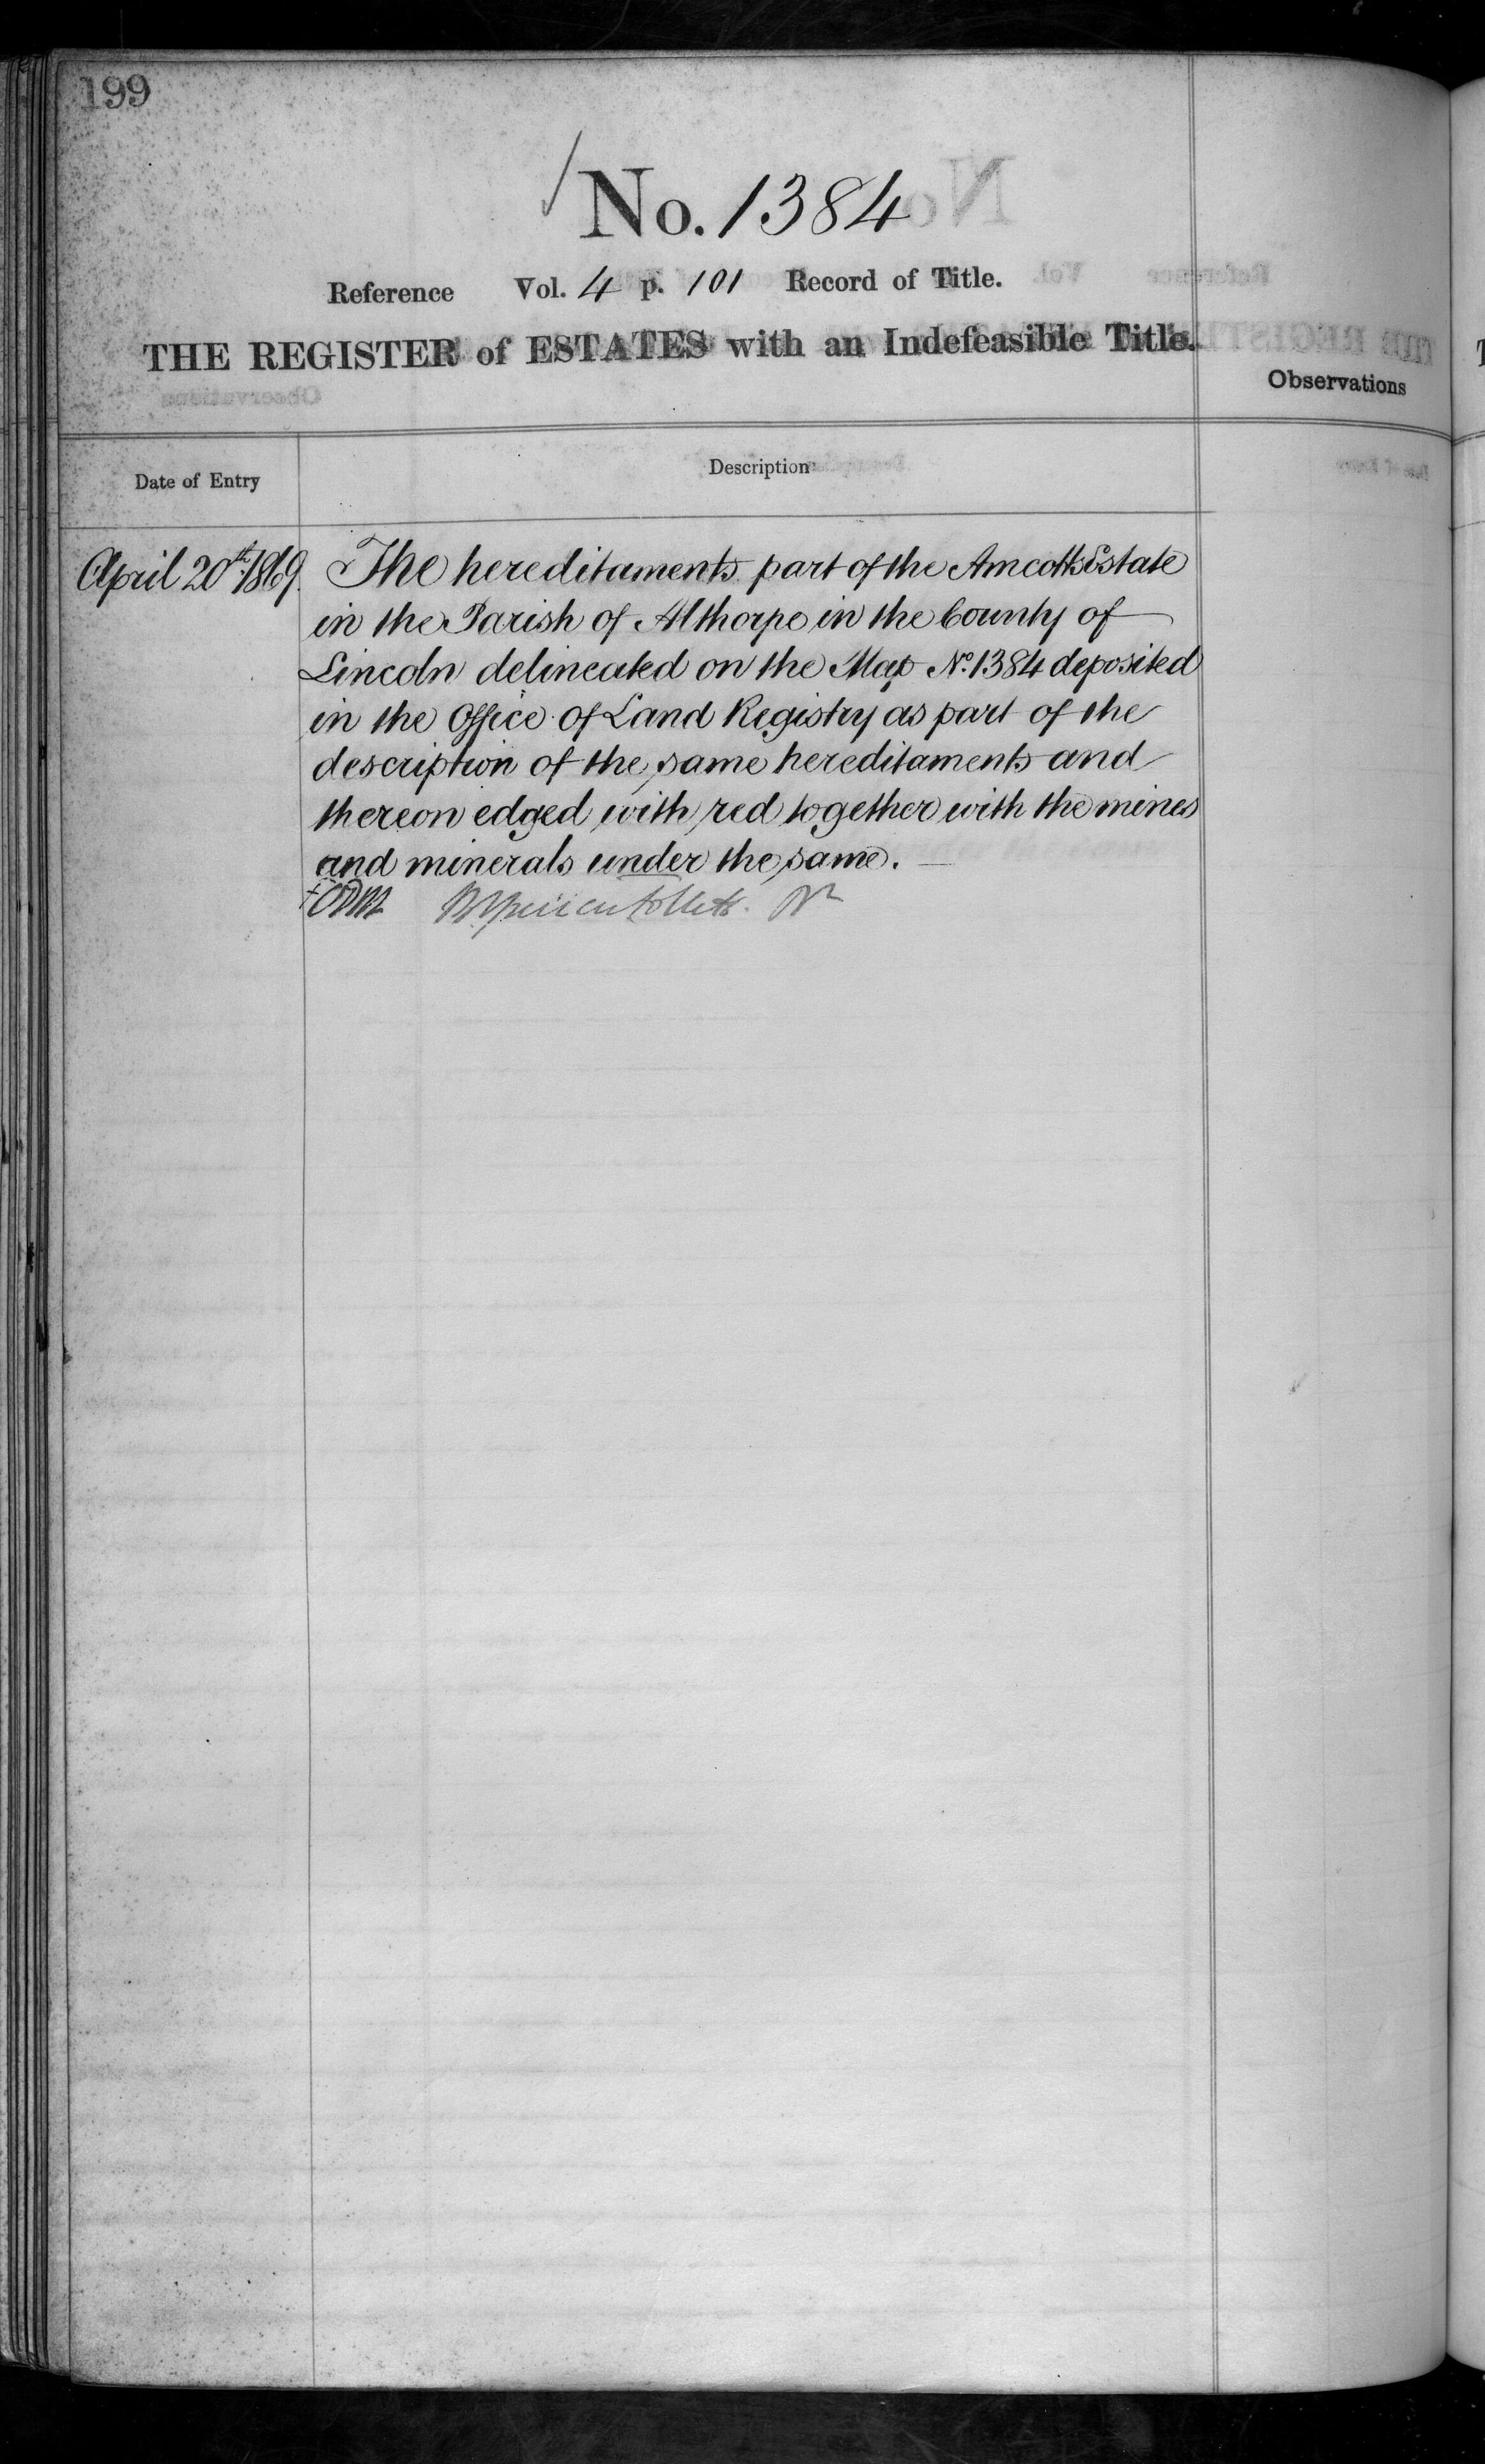 199
No. 1384
Reference Vol. 4 p. 101 Record of Title.
THE REGISTER of ESTATES with an Indefeasible Title.
Observations
Date of Entry
Description
April 20th. 1869. The hereditaments part of the Amcotts Estate
in the Parish of Althorpe in the County of
Lincoln delineated on the Map No. 1384 deposited
in the Office of Land Registry as part of the
description of the same hereditaments and
thereon edged with red together with the mines
and minerals under the same.